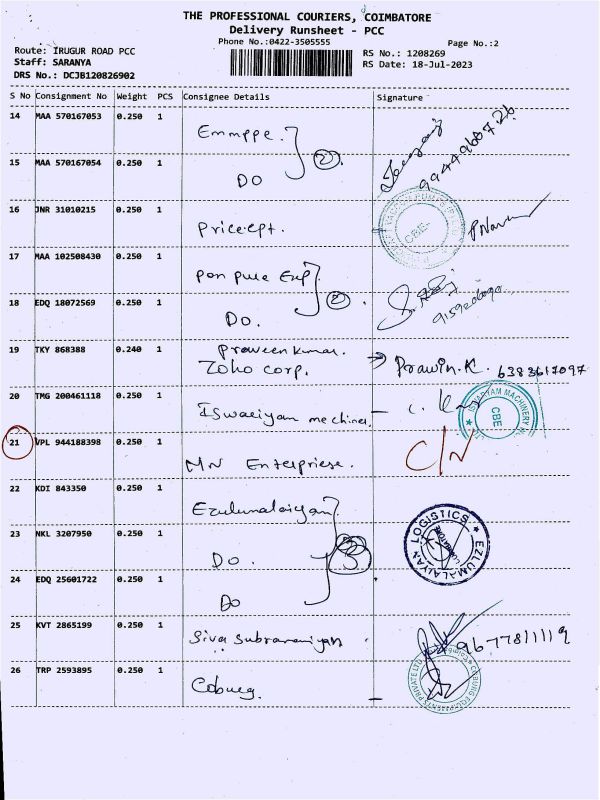 THE PROFESSIONAL COURIERS, COIMBATORE
Delivery Runsheet - PCC
Phone No.:0422-3505555
Page No.:2
Route: IRUGUR ROAD PCC
Staff: SARANYA
DRS No.: DCJB120826902
RS No.: 1208269
RS Date: 18-Jul-2023
S No Consignment No Weight PCS Consignee Details Signature
14 MAA 570167053 0.250 1 Emmppe. 9944968726
15 MAA 570167054 0.250 1 DO (2).
16 JNR 31010215 0.250 1 Pricecpt. CBE-
17 MAA 102508430 0.250 1 Pon pure Exp
18 EDQ 18072569 0.250 1 Do. (2).
19 TKY 868388 0.240 1 Praveen kumar.
Zoho corp. → Prawin.K. 6383617097
20 TMG 200461118 0.250 1 Iswaiiyam mechines - ISWARYAM MACHINERY CBE
21 VPL 944188398 0.250 1 MN Enterpriese. C/N
22 KDI 843350 0.250 1 Ezulumalaiyan
23 NKL 3207950 0.250 1 Do. 3 EZLUMALAIYAN LOGISTICS COIMBATORE
24 EDQ 25601722 0.250 1 Do
25 KVT 2865199 0.250 1 Siva subramaniyan 9677811119
26 TRP 2593895 0.250 1 Cobueg. COBURG EQUIPMENTS PRIVATE LTD